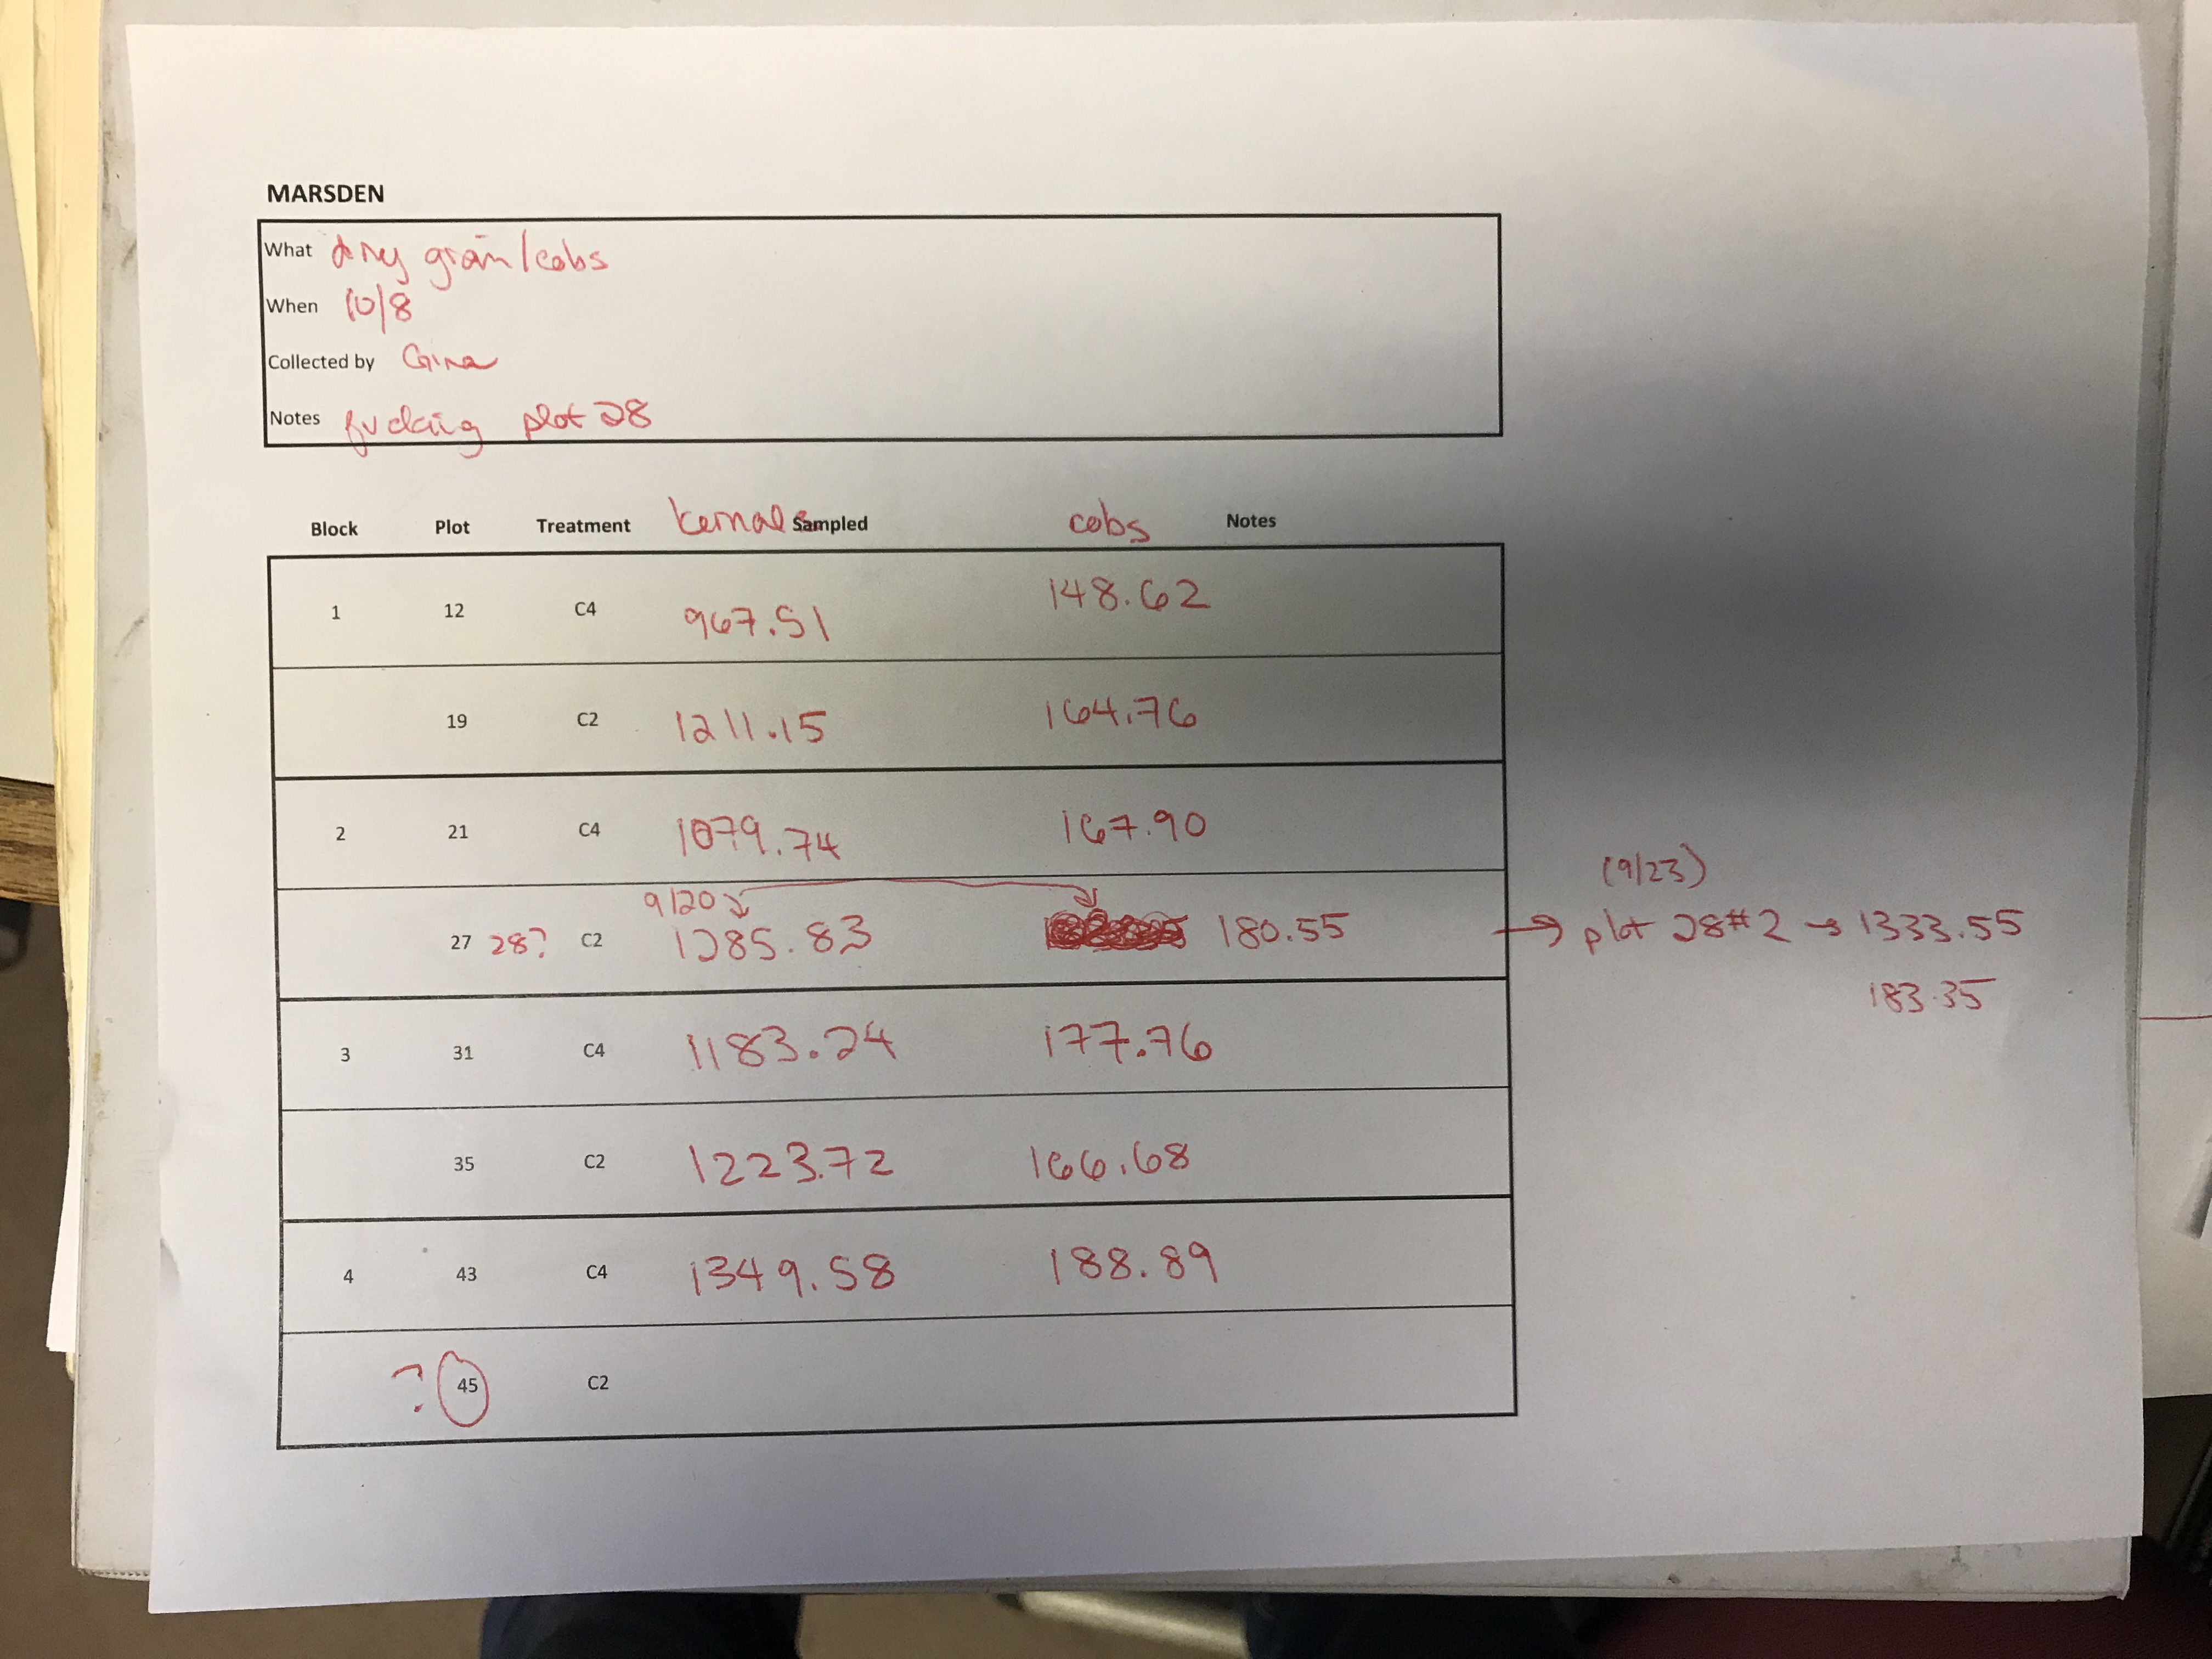 MARSDEN
What dry grain/cobs
When 10/8
Collected by Gina
Notes fucking plot 28
Block Plot Treatment kernals Sampled cobs Notes
1 12 C4 967.51 148.62
19 C2 1211.15 164.76
2 21 C4 1079.74 167.90
(9/23)
9/20
27 28? C2 1285.83 180.55 → plot 28#2 → 1333.55
183.35
3 31 C4 1183.24 177.76
35 C2 1223.72 166.68
4 43 C4 1349.58 188.89
? 45 C2